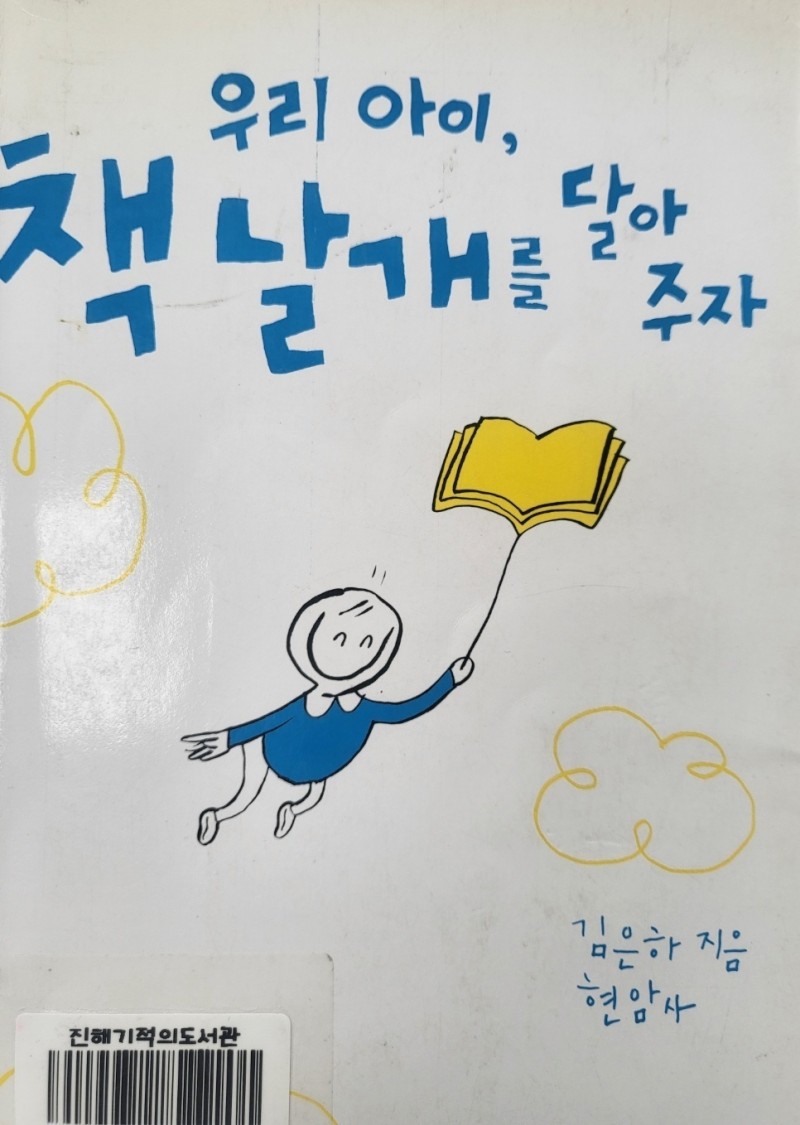 우리 아이,
책 날개를 달아
주자
김은하 지음
현암사
진해기적의도서관